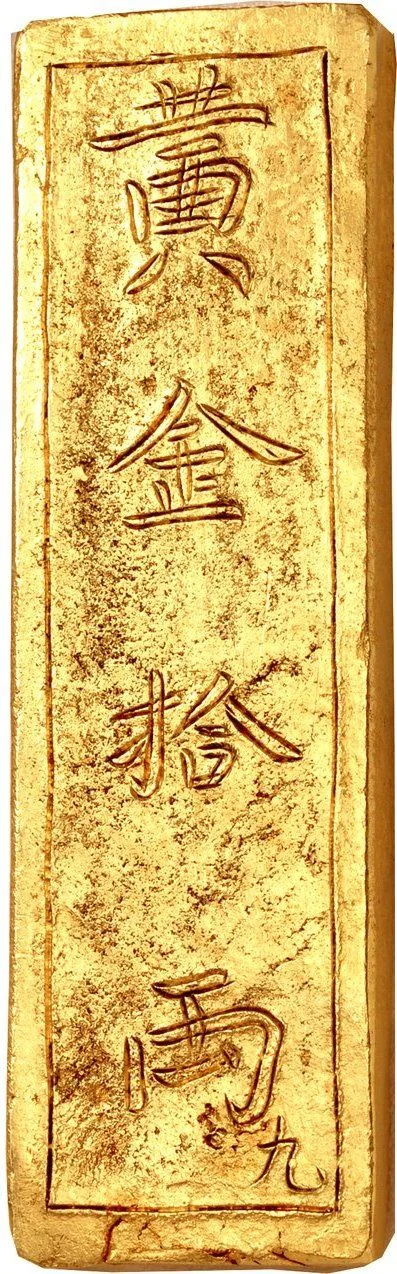 黃金拾兩
九